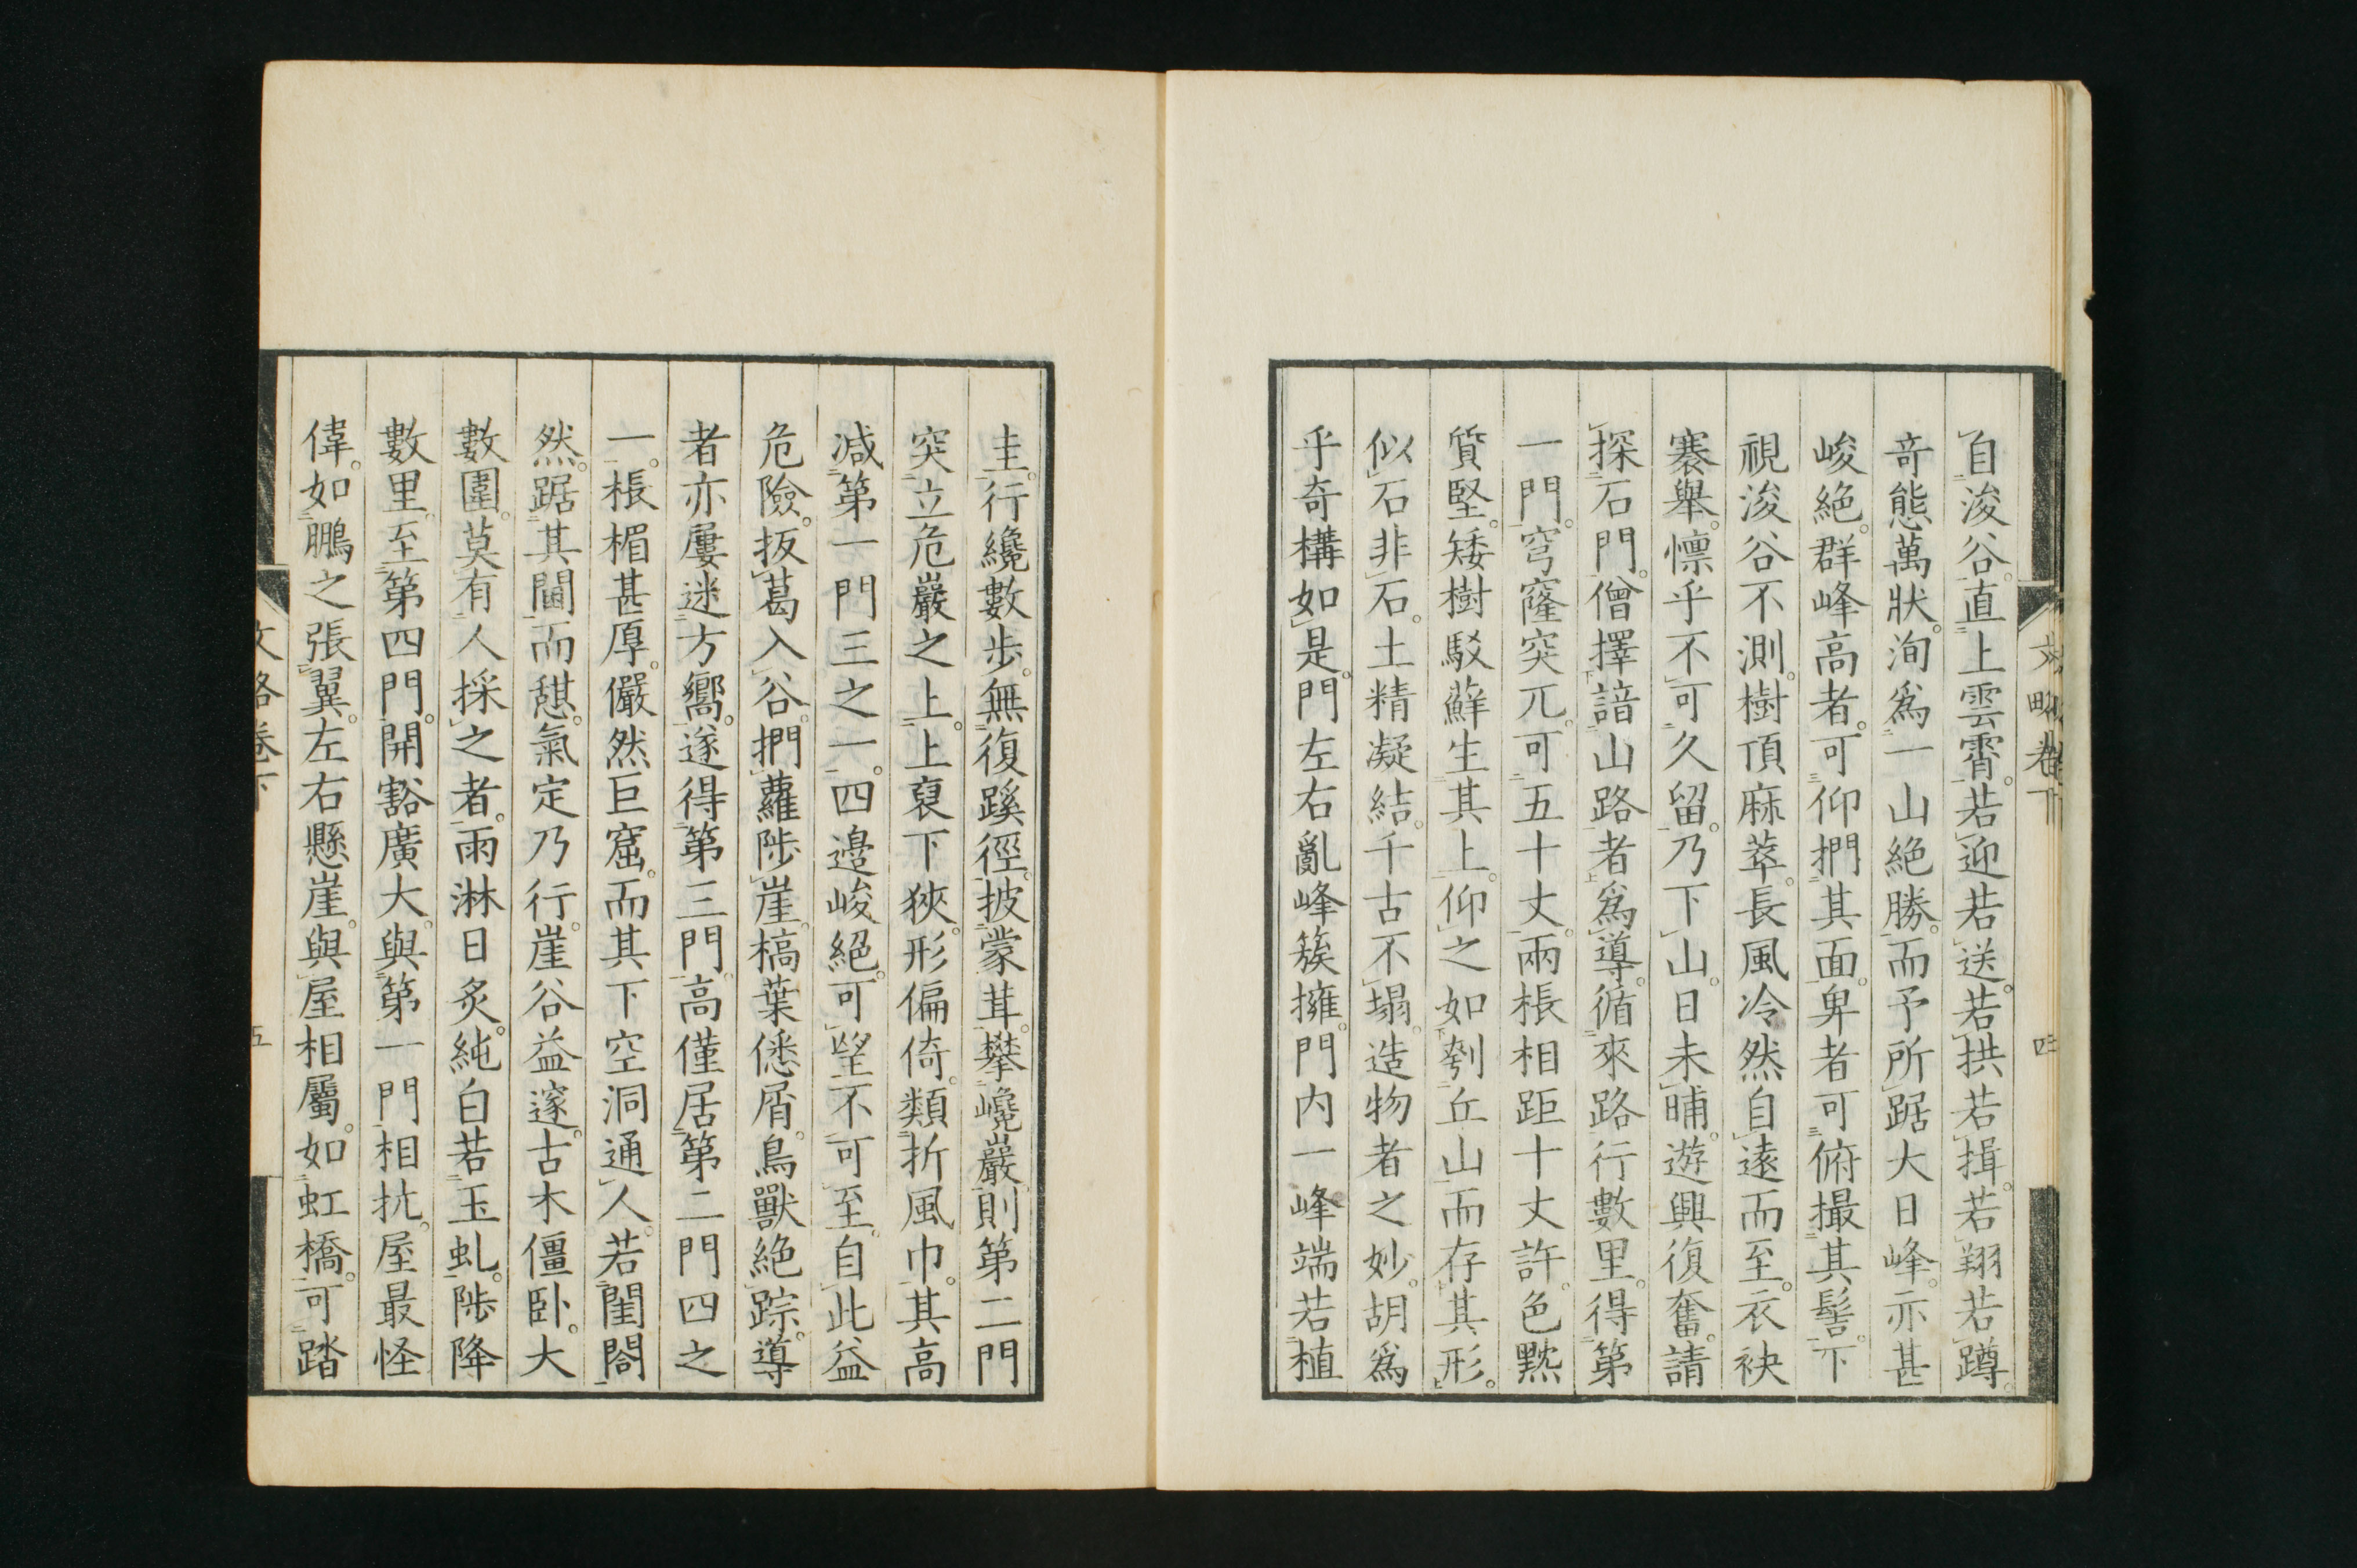 自浚谷。直上雲霄。若迎若送。若拱若揖。若翔若蹲。
竒態萬狀。洵爲一山絶勝。而予所踞大日峰。亦甚
峻絶。群峰高者。可仰捫其面。卑者可俯撮其髻。下
視浚谷不測。樹頂麻萃。長風冷然自遠而至。衣袂
褰舉。懍乎不可久留。乃下山。日未晡。遊興復奮。請
探石門。僧擇諳山路者爲導。循來路行數里。得第
一門。穹窿突兀。可五十丈。兩棖相距十丈許。色黙
質堅。矮樹駁蘚生其上。仰之如刳丘山而存其形。
似石非石。土精凝結。千古不塌。造物者之妙。胡爲
乎奇構如是。門左右亂峰簇擁。門内一峰端若植
文略卷下
四
圭。行纔數步。無復蹊徑。披蒙茸。攀巉巖。則第二門
突立危巖之上。上裒下狹。形偏倚。類折風巾。其高
減第一門三之一。四邊峻絕。可望不可至。自此益
危險。扳葛入谷。捫蘿陟崖。槁葉僁屑。鳥獸絶踪。導
者亦屢迷方嚮。遂得第三門。高僅居第二門四之
一。棖楣甚厚。儼然巨窟。而其下空洞通人。若閨閤
然。踞其閫而憇。氣定乃行。崖谷益邃。古木僵卧。大
數圍。莫有人採之者。雨淋日炙。純白若玉虬。陟降
數里。至第四門。開豁廣大。與第一門相抗。屋最怪
偉。如鵬之張翼。左右懸崖。與屋相屬。如虹橋。可踏
文略卷下
五